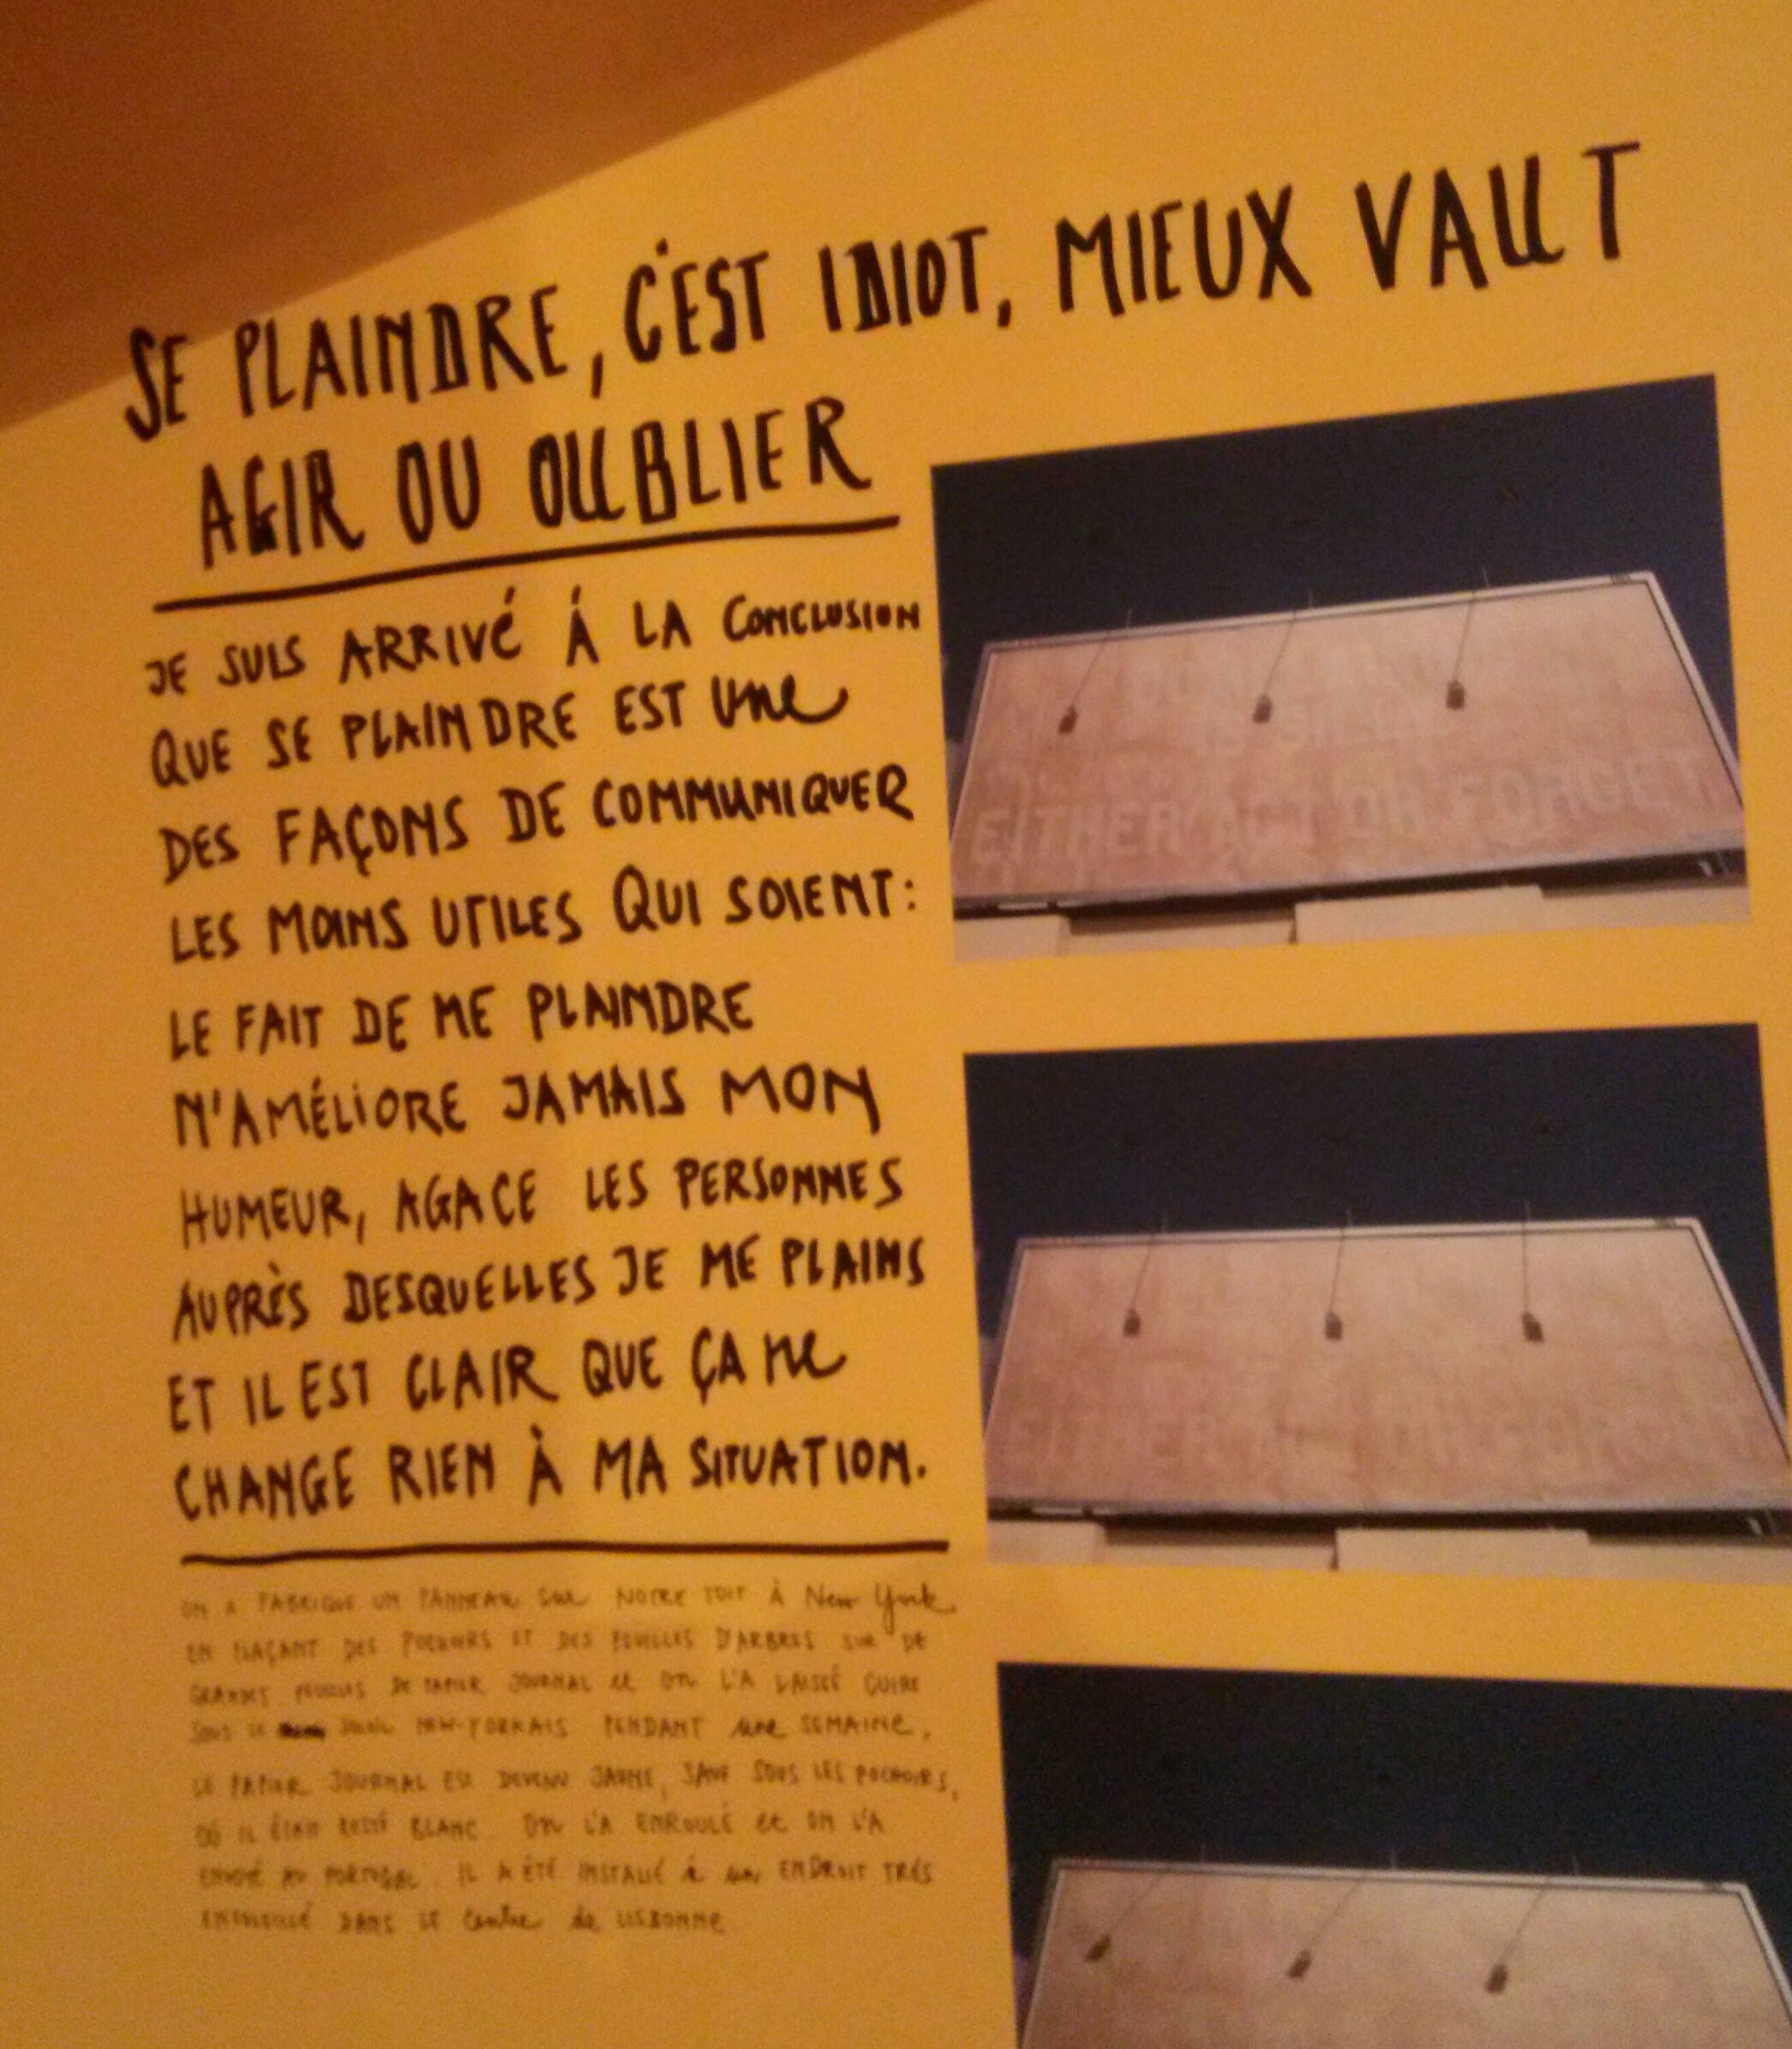 SE PLAINDRE, C'EST IDIOT, MIEUX VAUT
AGIR OU OUBLIER
JE SUIS ARRIVÉ À LA CONCLUSION
QUE SE PLAINDRE EST UNE
DES FAÇONS DE COMMUNIQUER
LES MOINS UTILES QUI SOIENT:
LE FAIT DE ME PLAINDRE
N'AMÉLIORE JAMAIS MON
HUMEUR, AGACE LES PERSONNES
AUPRÈS DESQUELLES JE ME PLAINS
ET IL EST CLAIR QUE ÇA NE
CHANGE RIEN À MA SITUATION.
ON A FABRIQUÉ UN PANNEAU SUR NOTRE TOIT À New York
EN PLAÇANT DES POCHOIRS ET DES FEUILLES D'ARBRES SUR DE
GRANDES FEUILLES DE PAPIER JOURNAL et ON L'A LAISSÉ CUIRE
SOUS LE SOLEIL NEW-YORKAIS PENDANT une SEMAINE.
LE PAPIER JOURNAL EST DEVENU JAUNE, SAUF SOUS LES POCHOIRS,
OÙ IL ÉTAIT RESTÉ BLANC. ON L'A ENROULÉ et ON L'A
ENVOYÉ AU PORTUGAL. IL A ÉTÉ INSTALLÉ à un ENDROIT TRÉS
DANS LE Centre de LISBONNE
EITHER ACT OR FORGET
EITHER ACT OR FORGET